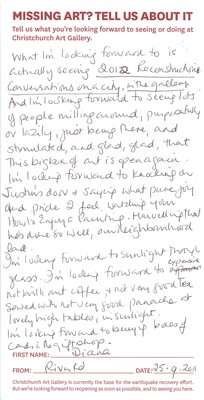 MISSING ART? TELL US ABOUT IT
Tell us what you're looking forward to seeing or doing at
Christchurch Art Gallery.
What I'm looking forward to is
actually seeing 2012 Reconstruction
Conversations on a city, in the gallery
And I'm looking forward to seeing lots
of people milling around, purposefully
or lazily, just being there, and
stimulated, and glad, glad, that
This big box of art is open again.
I'm looking forward to knocking on
Justin's door & saying what pure joy
and pride I feel
How to Enjoy a Painting. Marvelling that
has done so well, our neighbourhood
lead.
I'm looking forward to sunlight through
glass. I'm looking forward to expensive
not brill ant coffee & not very good tea
served with not very good panache at
lovely high tables, in sunlight.
I'm looking forward to buying boxes of
cards in giftshop.
FIRST NAME: Diana
FROM: DATE: 25.9.2011
Christchurch Art Gallery is currently the base for the earthquake recovery effort.
But we're looking forward to reopening as soon as possible, and to seeing you here.